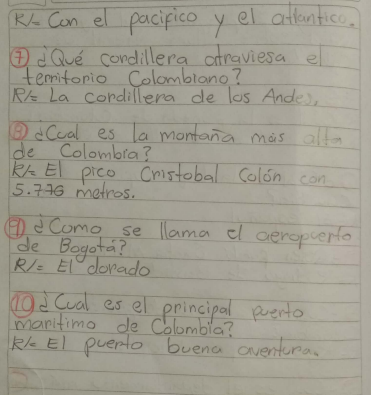 R/= Con el pacifico y el atlantico.
⑦ ¿Qué cordillera atraviesa el
territorio Colombiano?
R/= La cordillera de los Andes.
⑧ ¿Cual es la montaña más alta
de Colombia?
R/= El pico Cristobal Colón con
5.776 metros.
⑨ ¿Como se llama el aeropuerto
de Bogotá?
R/= El dorado
⑩ ¿Cual es el principal puerto
maritimo de Colombia?
R/= El puerto buena aventura.